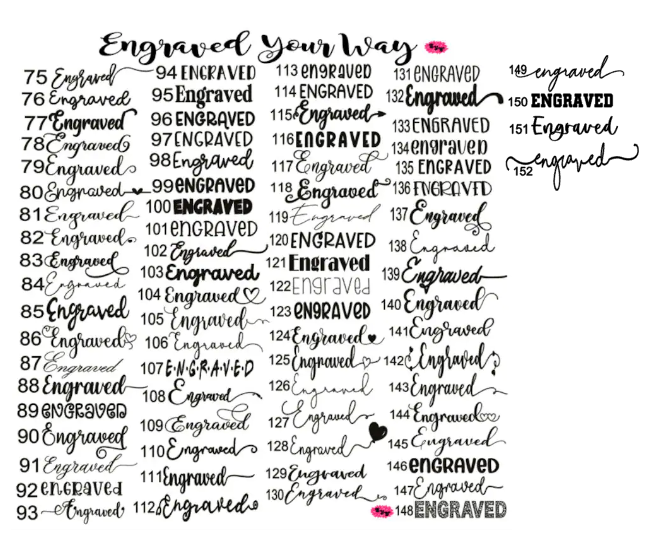 Engraved Your Way
75 Engraved
76 Engraved
77 Engraved
78 Engraved
79 Engraved
80 Engraved
81 Engraved
82 Engraved
83 Engraved
84 Engraved
85 Engraved
86 Engraved
87 Engraved
88 Engraved
89 ENGRAVED
90 Engraved
91 Engraved
92 enGRaVeD
93 Engraved
94 ENGRAVED
95 Engraved
96 ENGRAVED
97 ENGRAVED
98 Engraved
99 eNGRAVED
100 ENGRAVED
101 eNGRAVED
102 Engraved
103 Engraved
104 Engraved
105 Engraved
106 Engraved
107 E·N·G·R·A·V·E·D
108 Engraved
109 Engraved
110 Engraved
111 Engraved
112 Engraved
113 enGRAVED
114 ENGRAVED
115 Engraved
116 ENGRAVED
117 Engraved
118 Engraved
119 Engraved
120 ENGRAVED
121 Engraved
122 Engraved
123 eNGRAVED
124 Engraved
125 Engraved
126 Engraved
127 Engraved
128 Engraved
129 Engraved
130 Engraved
131 ENGRAVED
132 Engraved
133 ENGRAVED
134 enGRaveD
135 ENGRAVED
136 ENGRAVED
137 Engraved
138 Engraved
139 Engraved
140 Engraved
141 Engraved
142 Engraved
143 Engraved
144 Engraved
145 Engraved
146 eNGRAVED
147 Engraved
148 ENGRAVED
149 engraved
150 ENGRAVED
151 Engraved
152 engraved